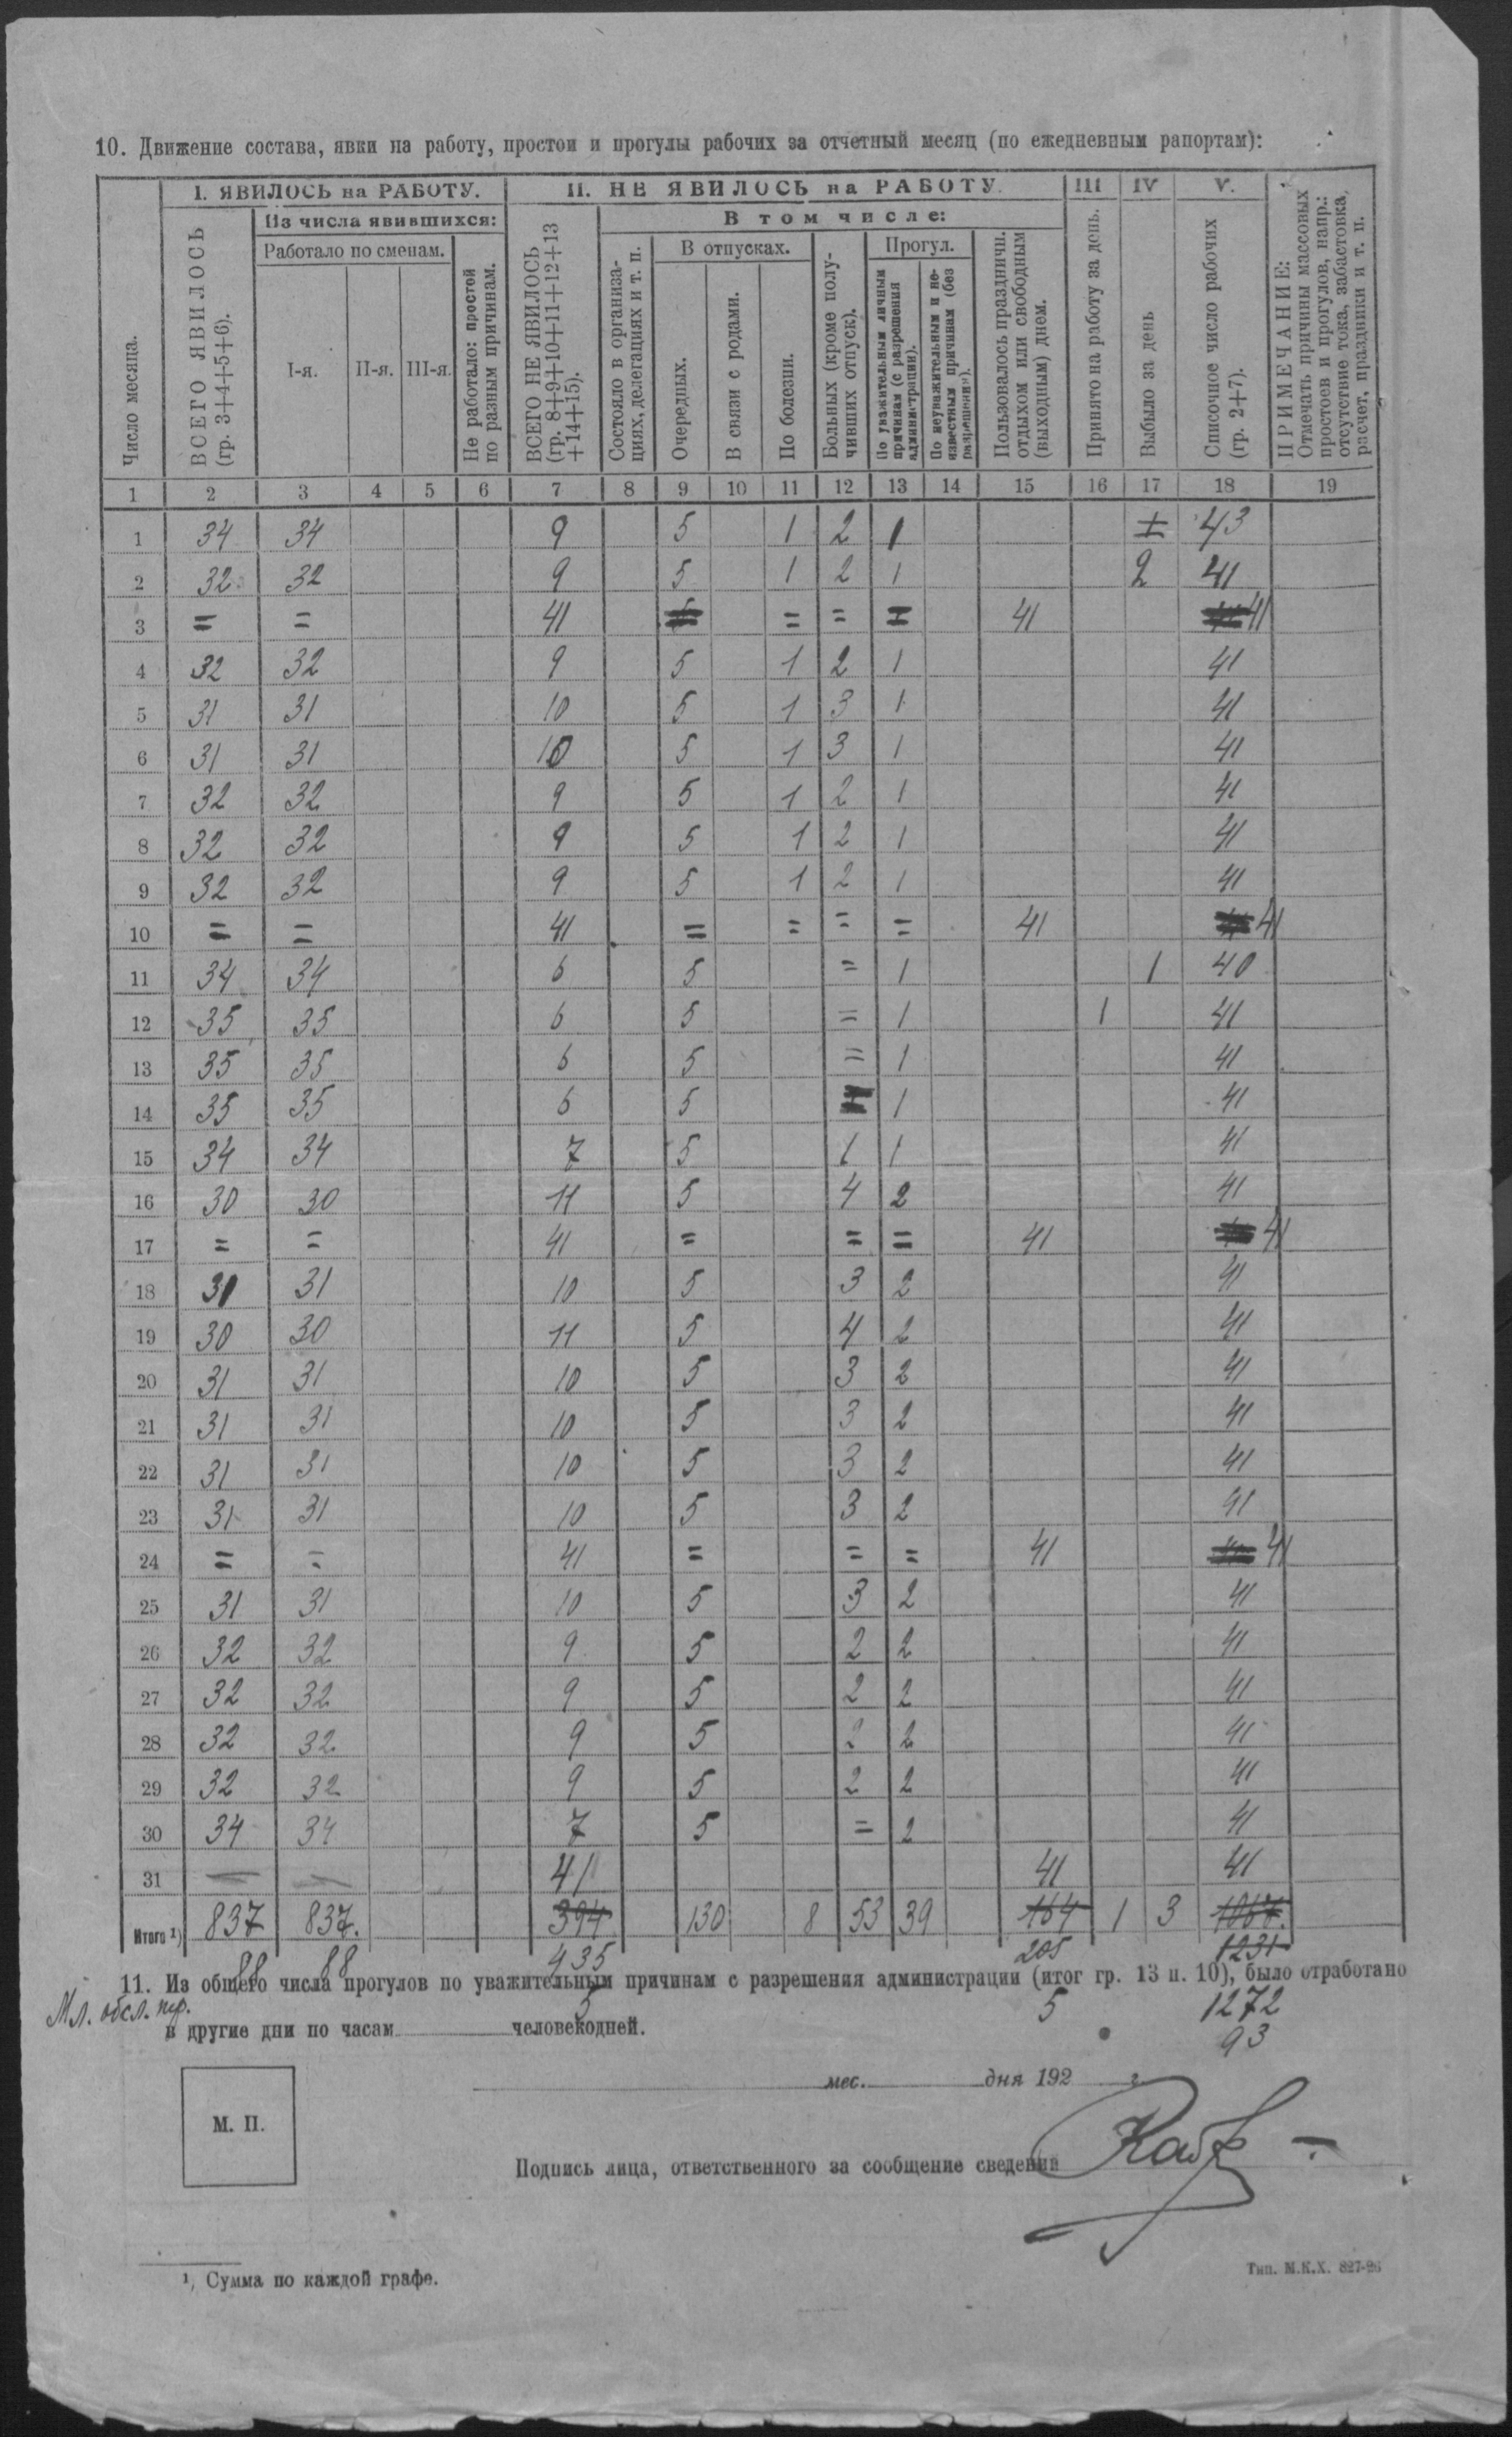 10. Движение состава, явки на работу, простои и прогулы рабочих за отчетный месяц (по ежедневным рапортам):
I. ЯВИЛОСЬ на РАБОТУ. II. НЕ ЯВИЛОСЬ на РАБОТУ. III IV V.
Из числа явившихся: В том числе:
Работало по сменам. В отпусках. Прогул.
Число месяца.
ВСЕГО ЯВИЛОСЬ
(гр. 3+4+5+6).
I-я. II-я. III-я.
Не работало: простой
по разным причинам.
ВСЕГО НЕ ЯВИЛОСЬ
(гр. 8+9+10+11+12+13
+14+15).
Состояло в организа-
циях, делегациях и т. п.
Очередных.
В связи с родами.
По болезни.
Больных (кроме полу-
чивших отпуск).
По уважительным личным
причинам (с разрешения
администрации).
По неуважительным и не-
известным причинам (без
разрешения).
Пользовалось праздничн.
отдыхом или свободным
(выходным) днем.
Принято на работу за день.
Выбыло за день
Списочное число рабочих
(гр. 2+7).
ПРИМЕЧАНИЕ:
Отмечать причины массовых
простоев и прогулов, напр.:
отсутствие тока, забастовка,
расчет, праздники и т. п.
1 2 3 4 5 6 7 8 9 10 11 12 13 14 15 16 17 18 19
1 34 34 9 5 1 2 1 43
2 32 32 9 5 1 2 1 2 41
3 = = 41 = = 41 41
4 32 32 9 5 1 2 1 41
5 31 31 10 5 1 3 1 41
6 31 31 10 5 1 3 1 41
7 32 32 9 5 1 2 1 41
8 32 32 9 5 1 2 1 41
9 32 32 9 5 1 2 1 41
10 = = 41 = = = = 41 41
11 34 34 6 5 = 1 1 40
12 35 35 6 5 = 1 1 41
13 35 35 6 5 = 1 41
14 35 35 6 5 1 41
15 34 34 7 5 1 1 41
16 30 30 11 5 4 2 41
17 = = 41 = = = 41 41
18 31 31 10 5 3 2 41
19 30 30 11 5 4 2 41
20 31 31 10 5 3 2 41
21 31 31 10 5 3 2 41
22 31 31 10 5 3 2 41
23 31 31 10 5 3 2 41
24 = = 41 = = = 41 41
25 31 31 10 5 3 2 41
26 32 32 9 5 2 2 41
27 32 32 9 5 2 2 41
28 32 32 9 5 2 2 41
29 32 32 9 5 2 2 41
30 34 34 7 5 = 2 41
31 — — 41 41 41
Итого ¹) 837 837. 394 130 8 53 39 164 1 3 1067.
88 88 435 205 1231
11. Из общего числа прогулов по уважительным причинам с разрешения администрации (итог гр. 13 п. 10), было отработано
Мл. обсл. пер. 5 5 1272
в другие дни по часам человекодней.
93
мес. дня 192 г.
М. П.
Подпись лица, ответственного за сообщение сведений
¹) Сумма по каждой графе.
Тип. М.К.Х. 827-26